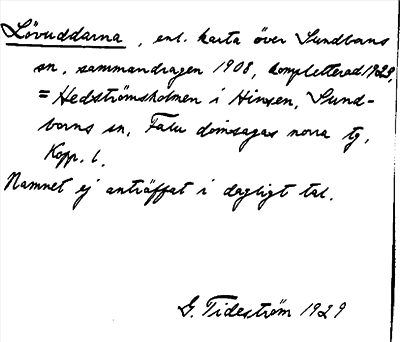 Lövuddarna, enl. karta över Sundborns
sn, sammandragen 1908, kompletterad 1923,
= Hedströmsholmen i Hinsen, Sund-
borns sn, Falu domsagas norra tg,
Kopp. l.
Namnet ej anträffat i dagligt tal.
G. Tideström 1929